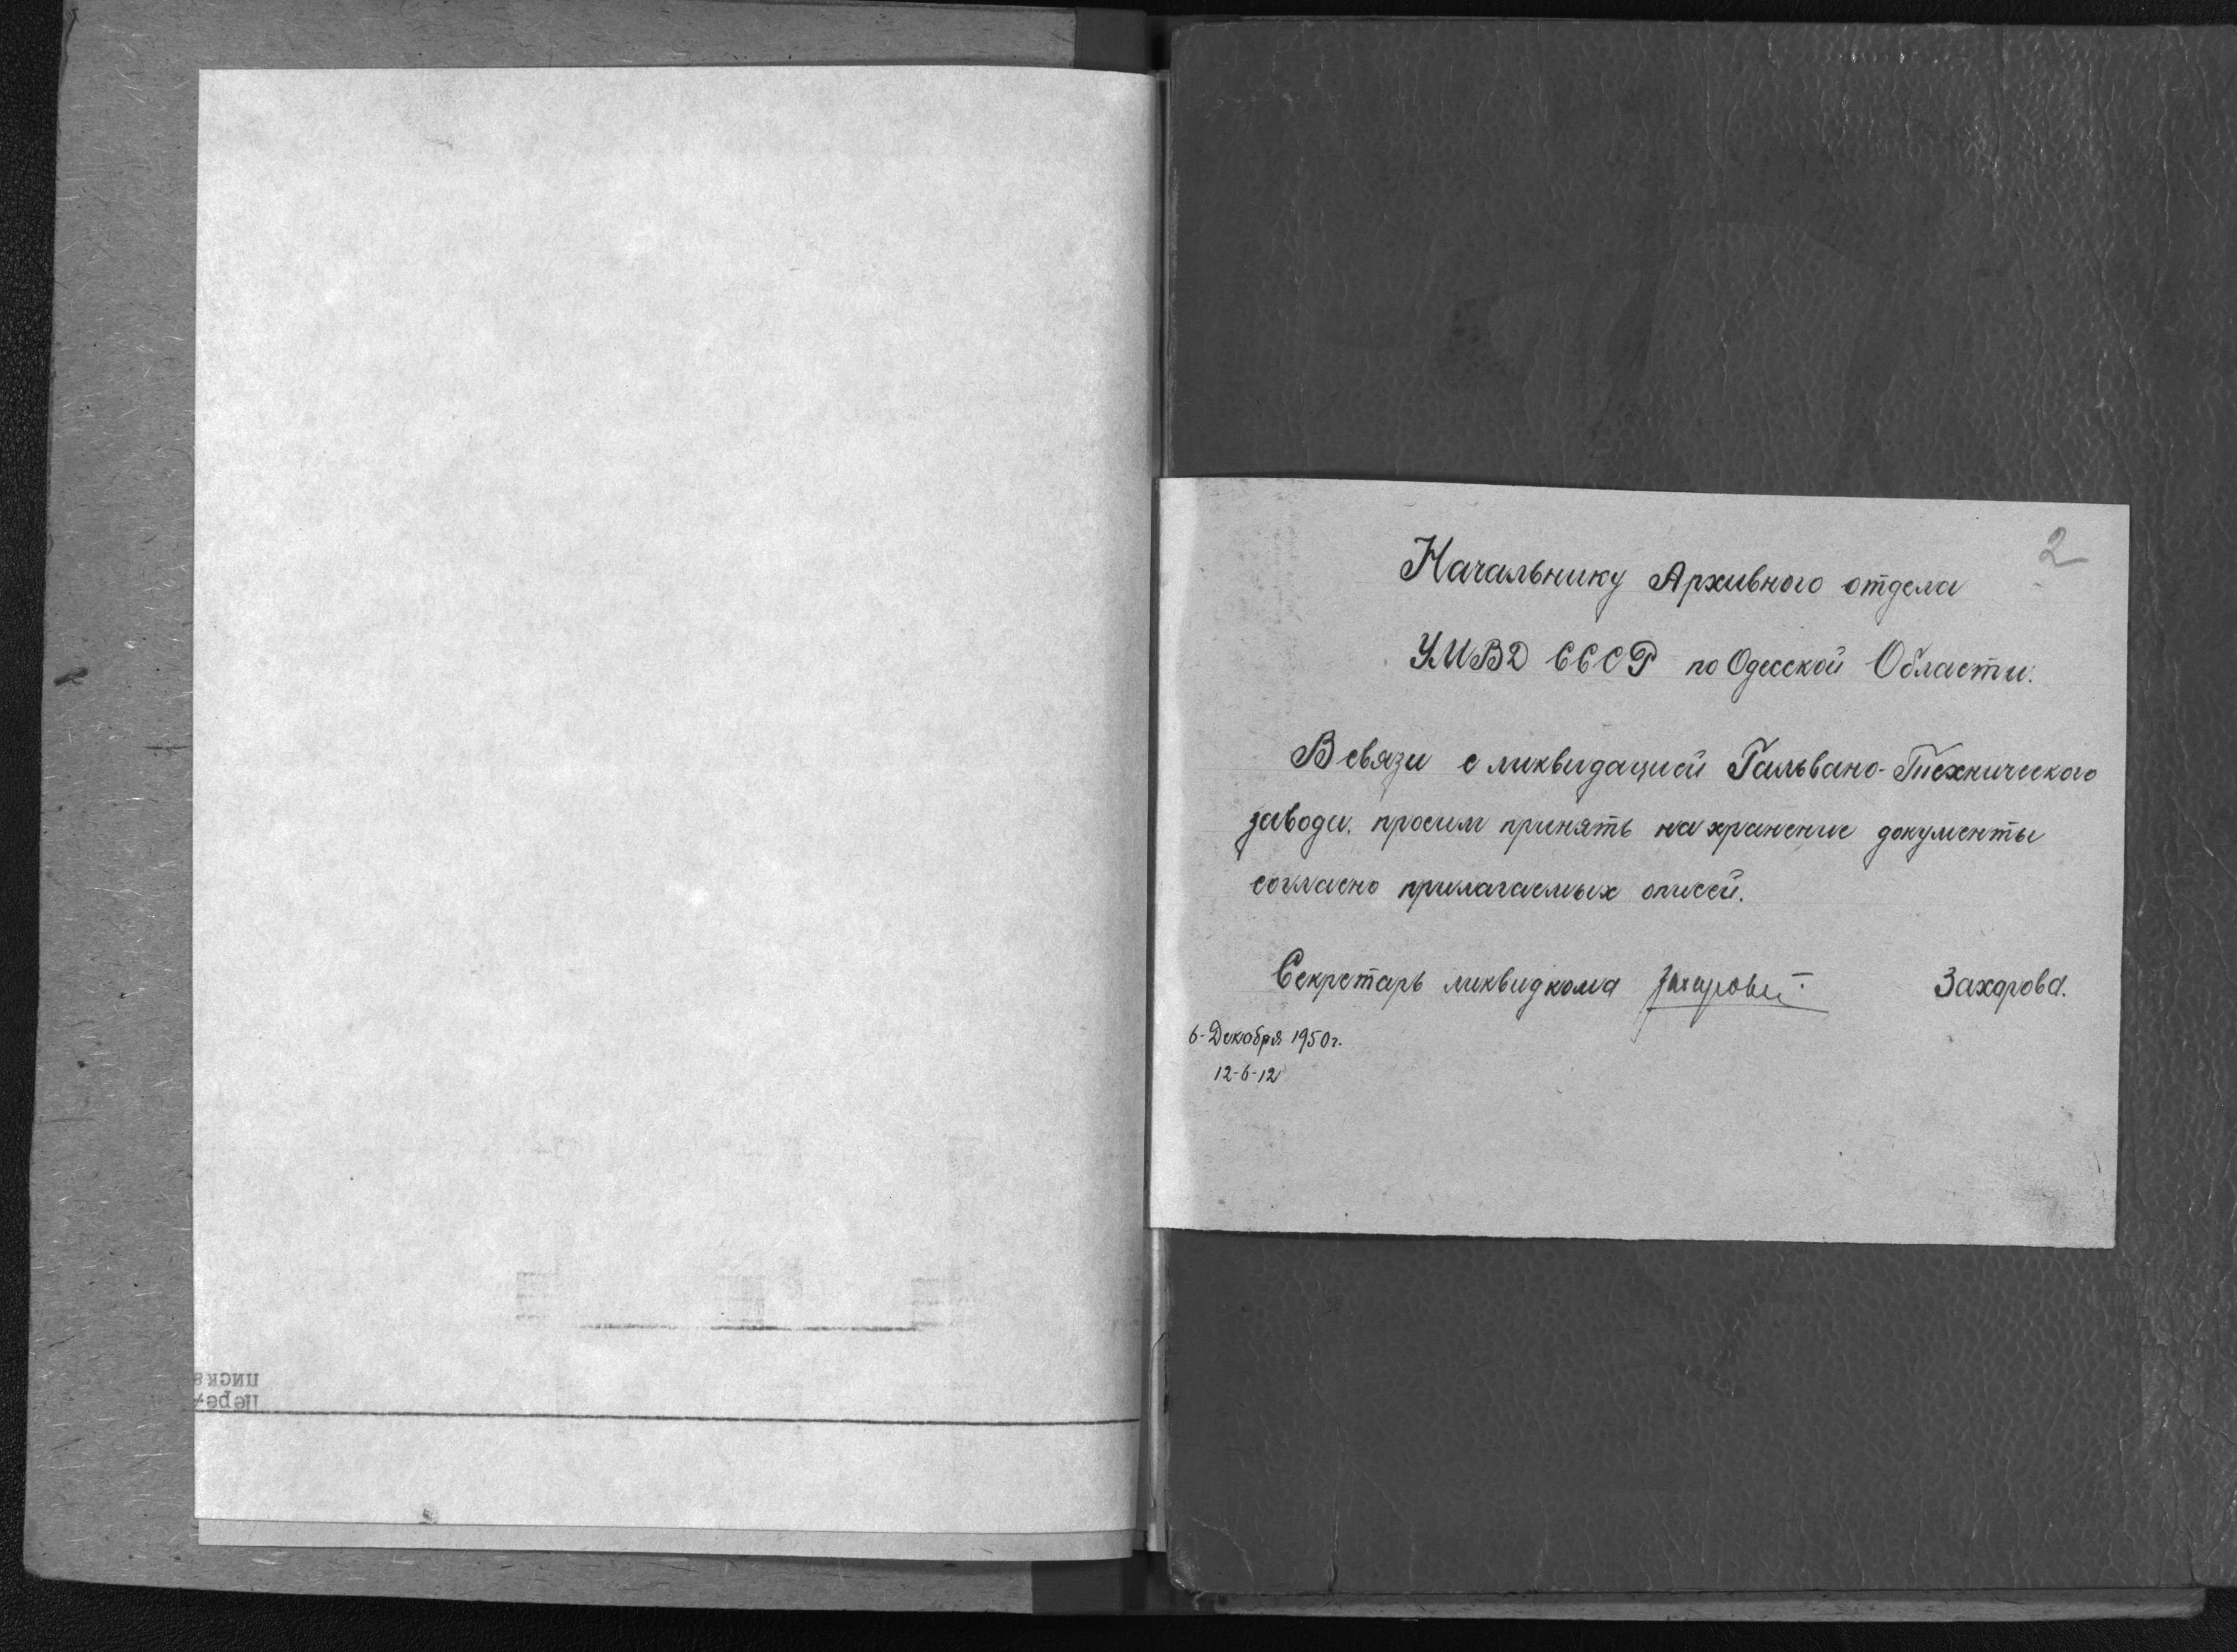 2
Начальнику Архивного отдела
УМВД СССР по Одесской Области.
В связи с ликвидацией Гальвано-Технического
завода. просим принять на хранение документы
согласно прилагаемых описей.
Секретарь ликвидкома Захарова Захарова.
6-Декабря 1950г.
12-6-12